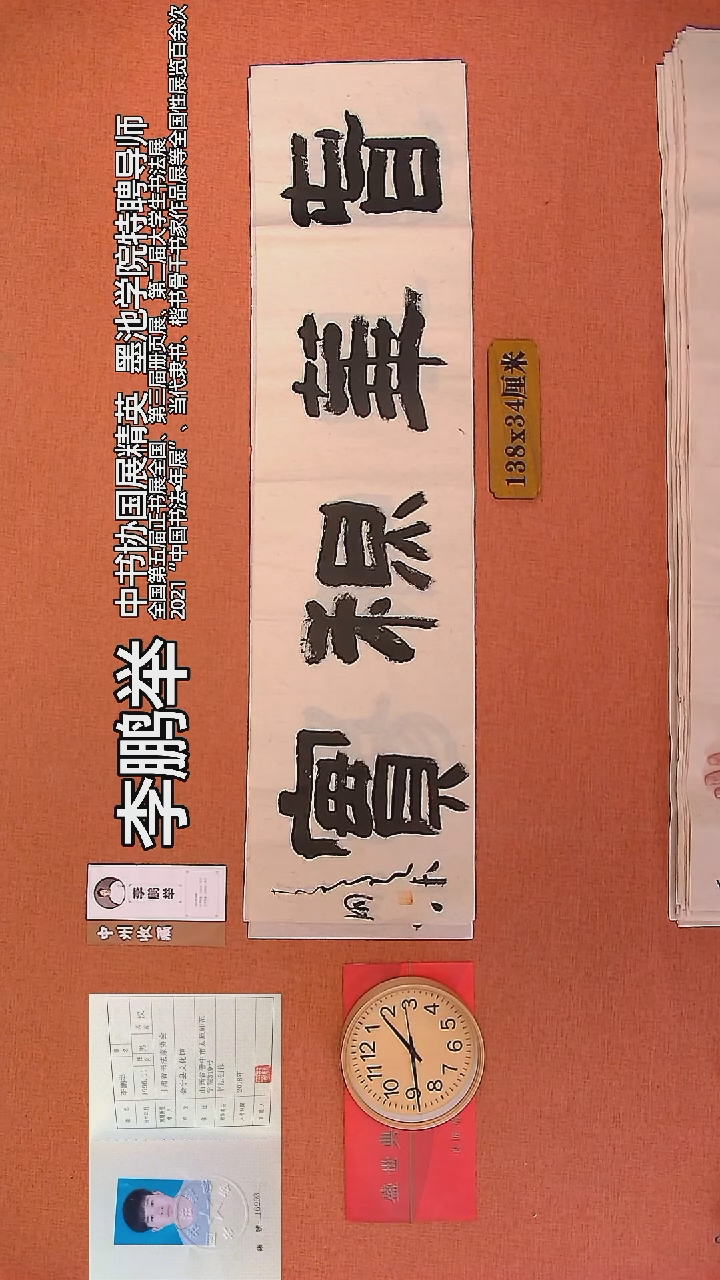 李鹏举
中书协国展精英 墨池学院特聘导师
全国第五届正书展全国、第三届册页展、第二届大学生书法展
2021“中国书法·年展”、当代隶书、楷书骨干书家作品展等全国性展览百余次
春華秋實
138x34厘米
李鹏举
中州收藏
盛世典
12 1 2 3 4 5 6 7 8 9 10 11